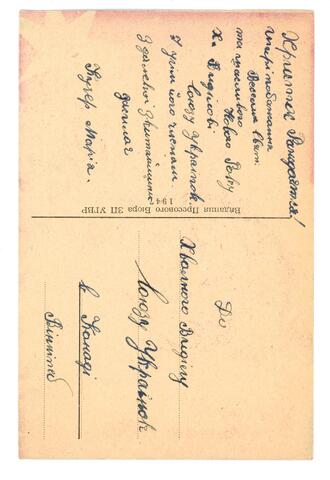 Христос Рождається!
Щирі побажання
Веселих Свят
та щасливого
Нового Року
Хв. Видїлові
Союзу Українок
і усім його членам
З далекої
висилає
Кузер Марія.
Видання Пресового Бюра ЗП УГВР
194
До
Хвального Видїлу
Союзу Українок
в Канаді
Вінніпеґ